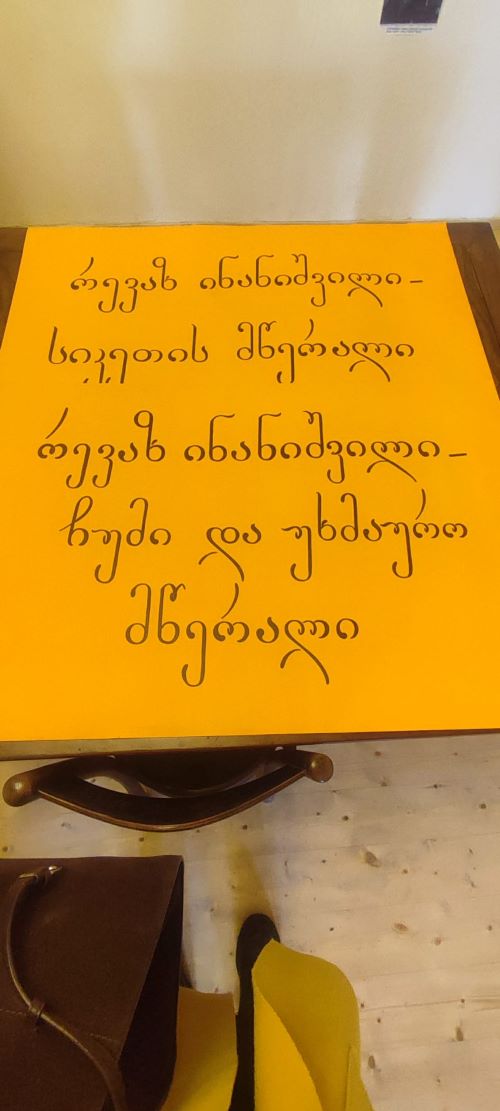 რევაზ ინანიშვილი-
სიკეთის მწერალი
რევაზ ინანიშვილი-
ჩუმი და უხმაურო
მწერალი